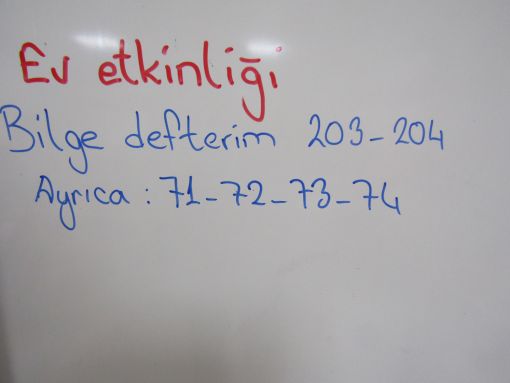 Ev etkinliği
Bilge defterim 203-204
Ayrıca : 71-72-73-74